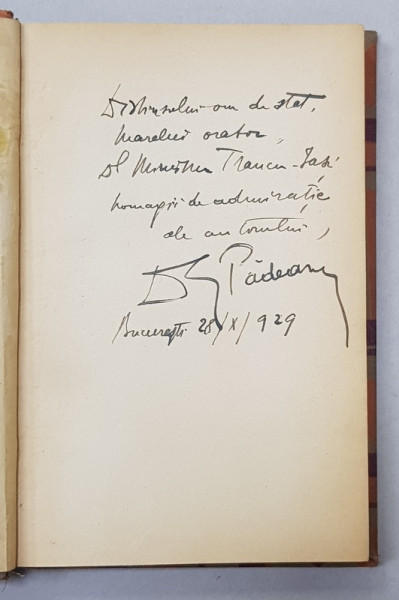 Distinsului om de stat,
marelui orator,
Dl Ministru Trancu-Iași
homagii de admirație
ale autorului,
Pădeanu
București 28/X/929